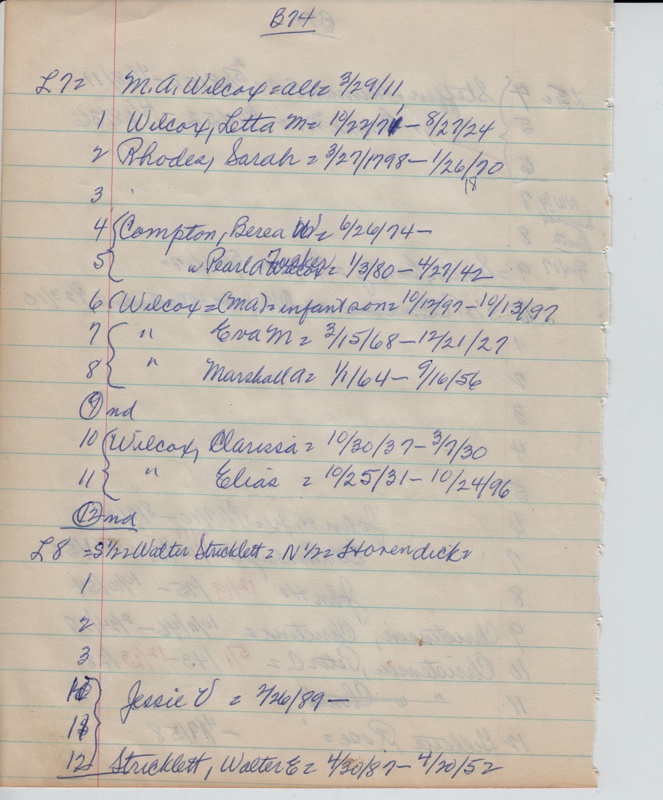 B74
L7= M.A. Wilcox = all = 3/29/11
1 Wilcox, Letta M = 10/22/71 - 8/27/24
2 Rhodes, Sarah = 3/27/1798 - 1/26/70
18
3
4 Compton, Berea W = 6/26/74 -
5 " Pearl A = 1/3/80 - 4/27/42
6 Wilcox = (MA) = infant son = 10/12/97 - 10/13/97
7 " Eva M = 3/15/68 - 12/21/27
8 " Marshall A = 1/1/64 - 9/16/56
9 nd
10 Wilcox, Clarissa = 10/30/37 - 3/7/30
11 " Elias = 10/25/31 - 10/24/96
12 nd
L8 = S 1/2 = Walter Stricklett = N 1/2 =
1
2
3
10 Jessie V = 2/26/89 -
11
12 Stricklett, Walter E = 4/30/87 - 4/20/52